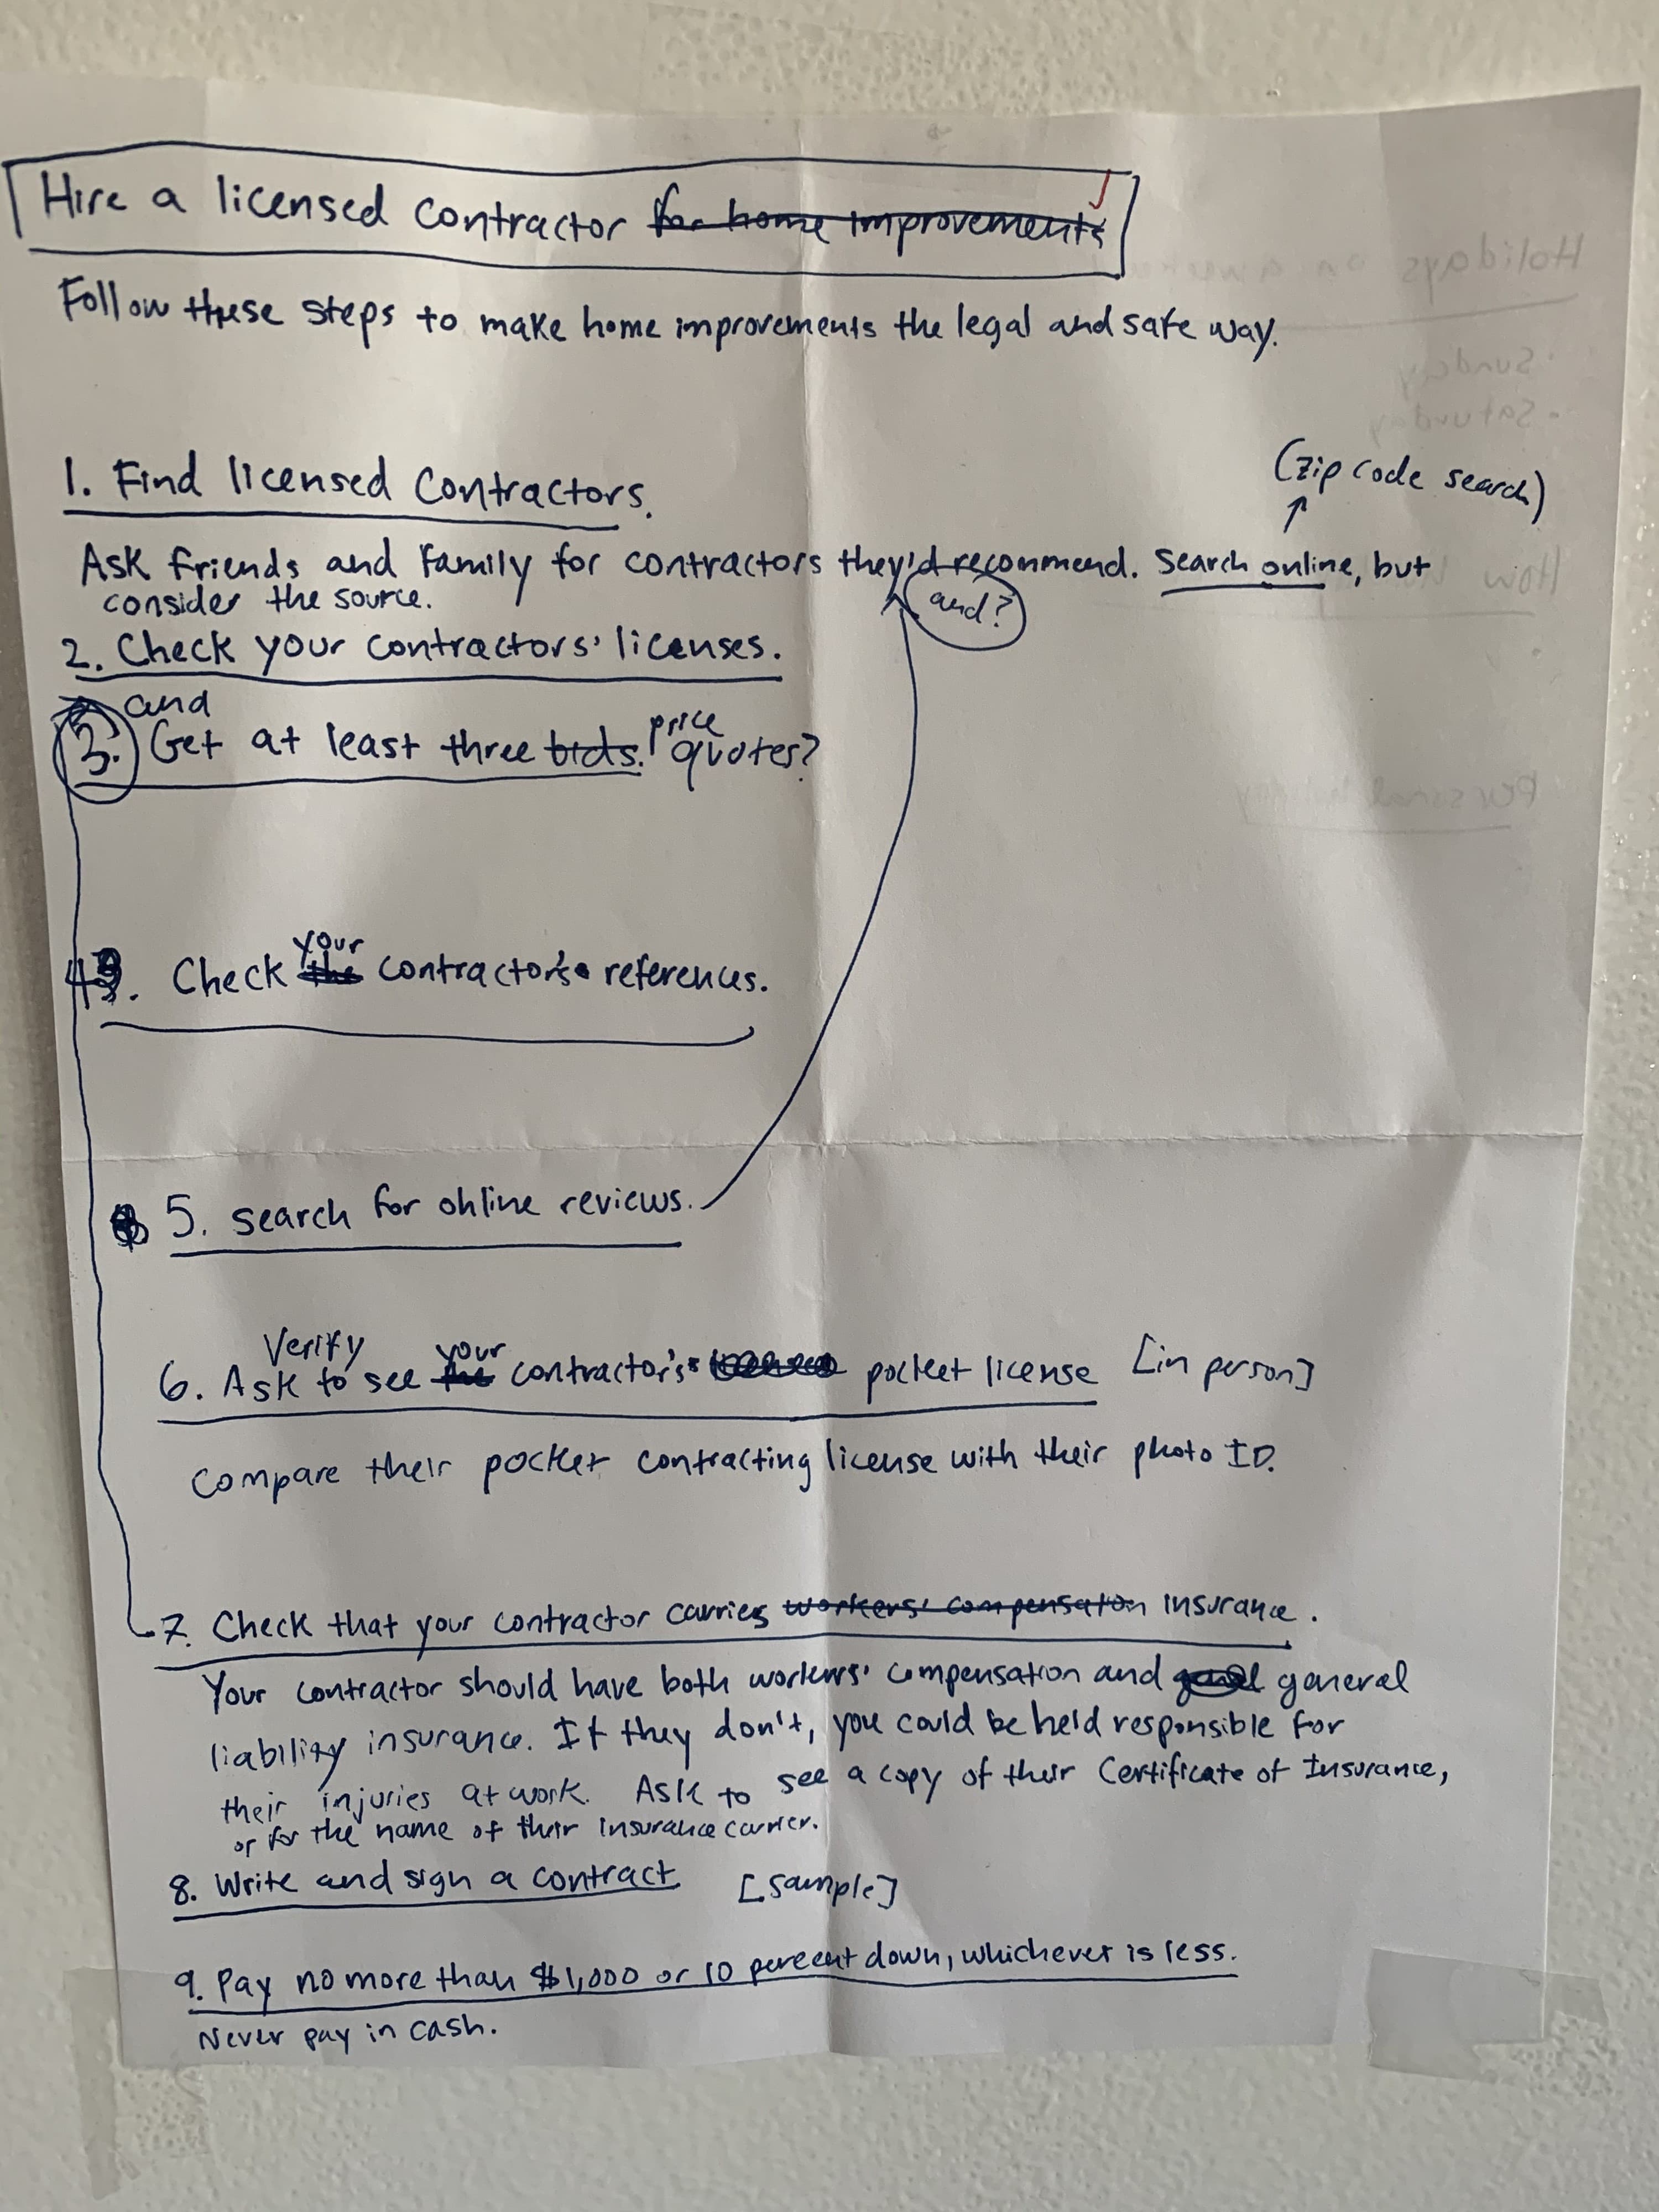 Hire a licensed contractor for home improvements
Follow these steps to make home improvements the legal and safe way.
(zip code search)
1. Find licensed contractors.
Ask friends and family for contractors they'd recommend. Search online, but
consider the source.
and?
2. Check your contractors' licenses.
and
3. Get at least three bids. price quotes?
your
4. Check the contractor's references.
5. Search for online reviews.
Verify your
6. Ask to see the contractor's pocket license [in person]
Compare their pocket contracting license with their photo ID.
7. Check that your contractor carries workers' compensation insurance.
Your contractor should have both workers' compensation and general
liability insurance. If they don't, you could be held responsible for
their injuries at work. Ask to see a copy of their Certificate of Insurance,
or for the name of their insurance carrier.
8. Write and sign a contract [sample]
9. Pay no more than $1,000 or 10 percent down, whichever is less.
Never pay in cash.
Holidays on a
Sunday
Saturday
How
Personal